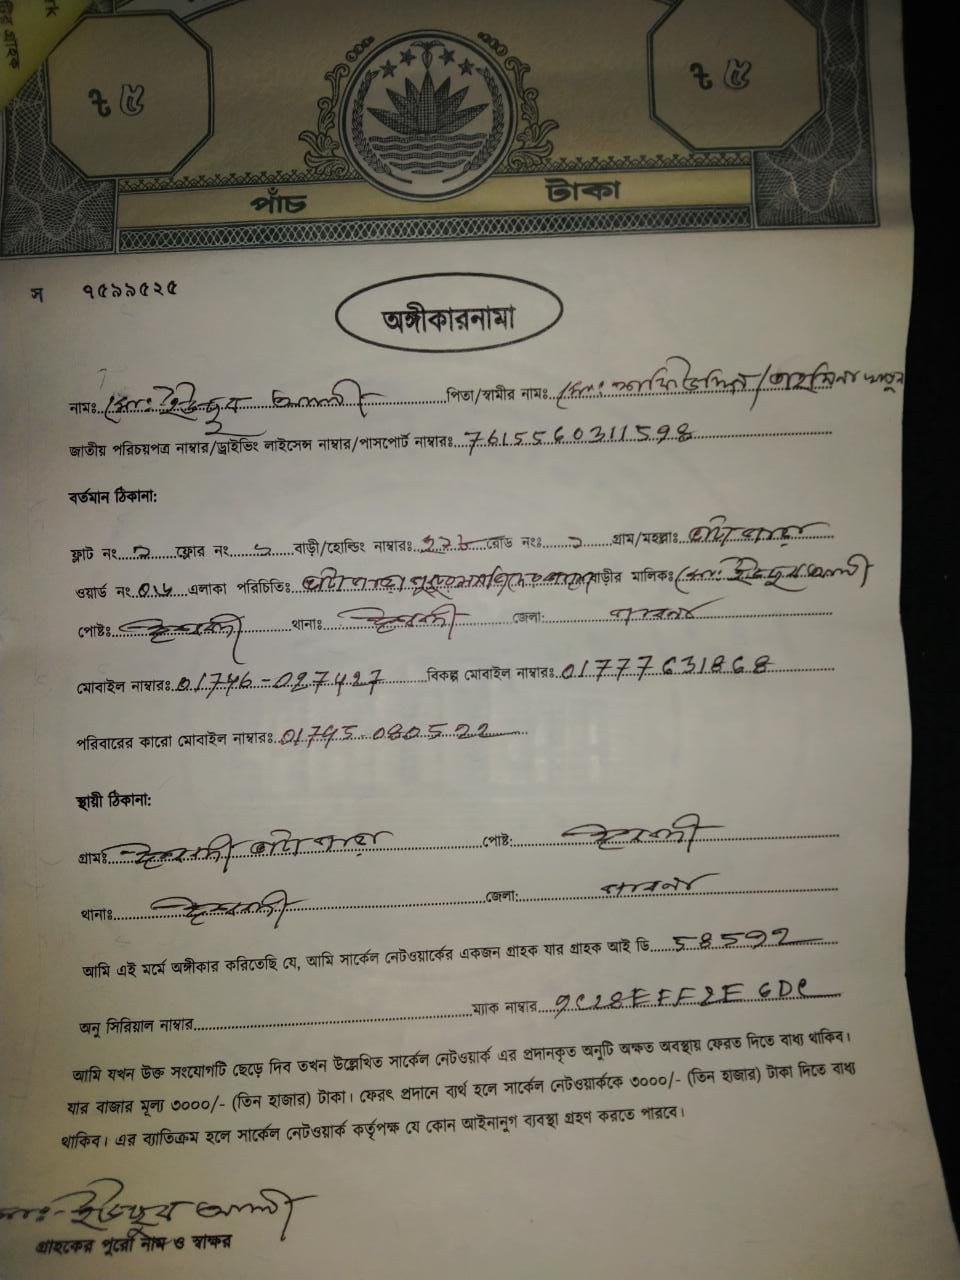 ৳ ৫ ৳ ৫
পাঁচ টাকা
স ৭৫৯৯৫২৫
অঙ্গীকারনামা
নামঃ মোঃ ইউসুব আলী পিতা/স্বামীর নাম: মোঃ
জাতীয় পরিচয়পত্র নাম্বার/ড্রাইভিং লাইসেন্স নাম্বার/পাসপোর্ট নাম্বারঃ 7615560311598
বর্তমান ঠিকানা:
ফ্লাট নং ফ্লোর নং বাড়ী/হোল্ডিং নাম্বারঃ রোড নংঃ গ্রাম/মহল্লাঃ
ওয়ার্ড নং এলাকা পরিচিতিঃ বাড়ীর মালিকঃ মোঃ ইউসুব আলী
পোষ্টঃ ঈশ্বরদী থানাঃ ঈশ্বরদী জেলা: পাবনা
মোবাইল নাম্বারঃ 01746-027427 বিকল্প মোবাইল নাম্বারঃ 01777631868
পরিবারের কারো মোবাইল নাম্বারঃ 01745-080522
স্থায়ী ঠিকানা:
গ্রামঃ ঈশ্বরদী পোষ্ট: ঈশ্বরদী
থানাঃ ঈশ্বরদী জেলা: পাবনা
আমি এই মর্মে অঙ্গীকার করিতেছি যে, আমি সার্কেল নেটওয়ার্কের একজন গ্রাহক যার গ্রাহক আই ডি 58592
অনু সিরিয়াল নাম্বার ম্যাক নাম্বার 9C28EFF2E6DC
আমি যখন উক্ত সংযোগটি ছেড়ে দিব তখন উল্লেখিত সার্কেল নেটওয়ার্ক এর প্রদানকৃত অনুটি অক্ষত অবস্থায় ফেরত দিতে বাধ্য থাকিব।
যার বাজার মূল্য ৩০০০/- (তিন হাজার) টাকা। ফেরৎ প্রদানে ব্যর্থ হলে সার্কেল নেটওয়ার্ককে ৩০০০/- (তিন হাজার) টাকা দিতে বাধ্য
থাকিব। এর ব্যাতিক্রম হলে সার্কেল নেটওয়ার্ক কর্তৃপক্ষ যে কোন আইনানুগ ব্যবস্থা গ্রহণ করতে পারবে।
মোঃ- ইউসুব আলী
গ্রাহকের পুরো নাম ও স্বাক্ষর